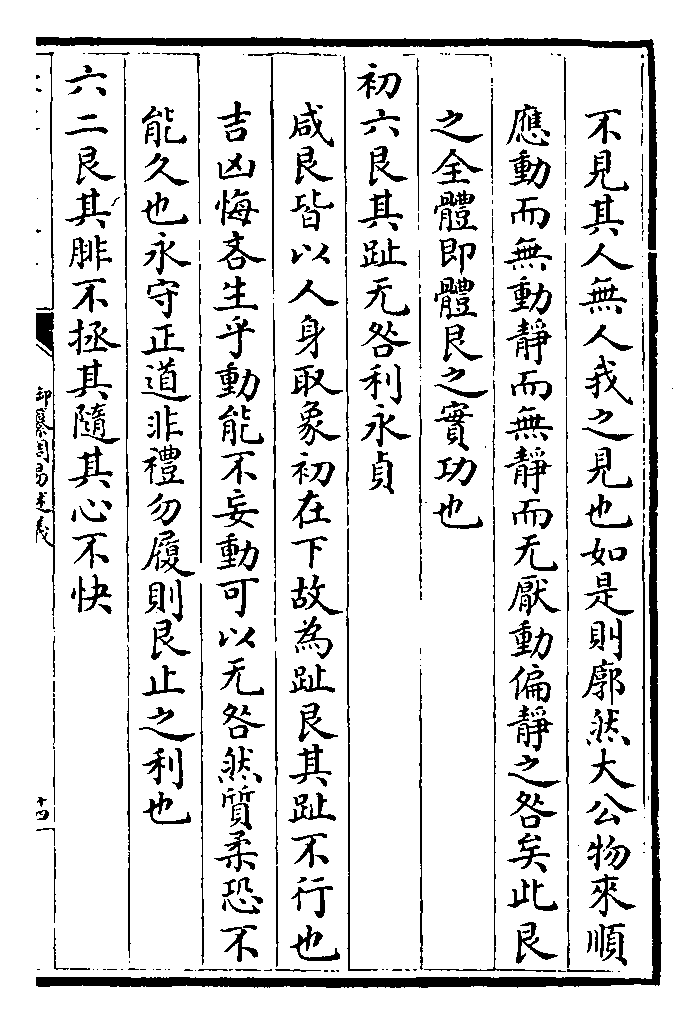 不見其人無人我之見也如是則廓然大公物來順
應動而無動靜而無靜而无厭動偏靜之咎矣此艮
之全體即體艮之實功也
初六艮其趾无咎利永貞
咸艮皆以人身取象初在下故為趾艮其趾不行也
吉凶悔吝生乎動能不妄動可以无咎然質柔恐不
能久也永守正道非禮勿履則艮止之利也
六二艮其腓不拯其隨其心不快
御纂周易述義
十四